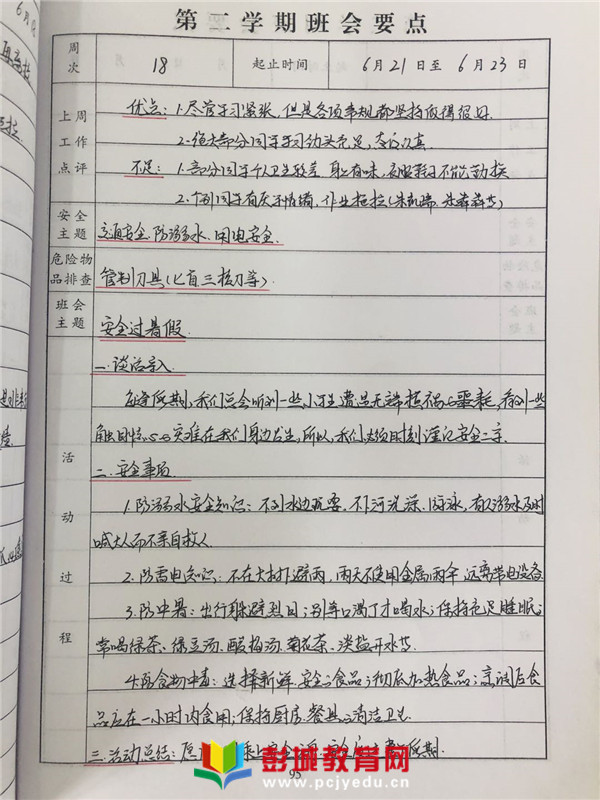 第二学期班会要点
周次 18 起止时间 6月21日至6月23日
上周工作点评
优点：1.尽管学习紧张，但是各项常规都坚持做得很好
2.绝大部分同学学习劲头充足，态度认真
不足：1.部分同学个人卫生较差 身上有味，衣服鞋子不能勤换
2.个别同学有厌学情绪，作业拖拉
安全主题 交通安全.防溺水.用电安全.
危险物品排查 管制刀具(匕首三棱刀等)
班会主题 安全过暑假
活动过程
一.谈话导入
在每年假期，我们总会听到一些小学生遭遇无端横祸的噩耗，看到一些
触目惊心的灾难在我们身边发生，所以，我们必须时刻谨记安全二字
二.安全事项
1.防溺水安全知识：不到水边玩耍，不下河洗澡、游泳，有人溺水及时
喊大人而不亲自救人
2.防雷电知识：不在大树下避雨，雨天不使用金属雨伞 远离带电设备
3.防中暑：出行躲避烈日；别等口渴了才喝水；保持充足睡眠；
常喝绿茶、绿豆汤、酸梅汤、菊花茶、淡盐开水等
4.防食物中毒：选择新鲜、安全的食品；彻底加热食品；烹调后食
品应在一小时内食用；保持厨房、餐具的清洁卫生
三.活动总结：愿 假期.
95
彭城教育网
www.pcjyedu.cn
6月